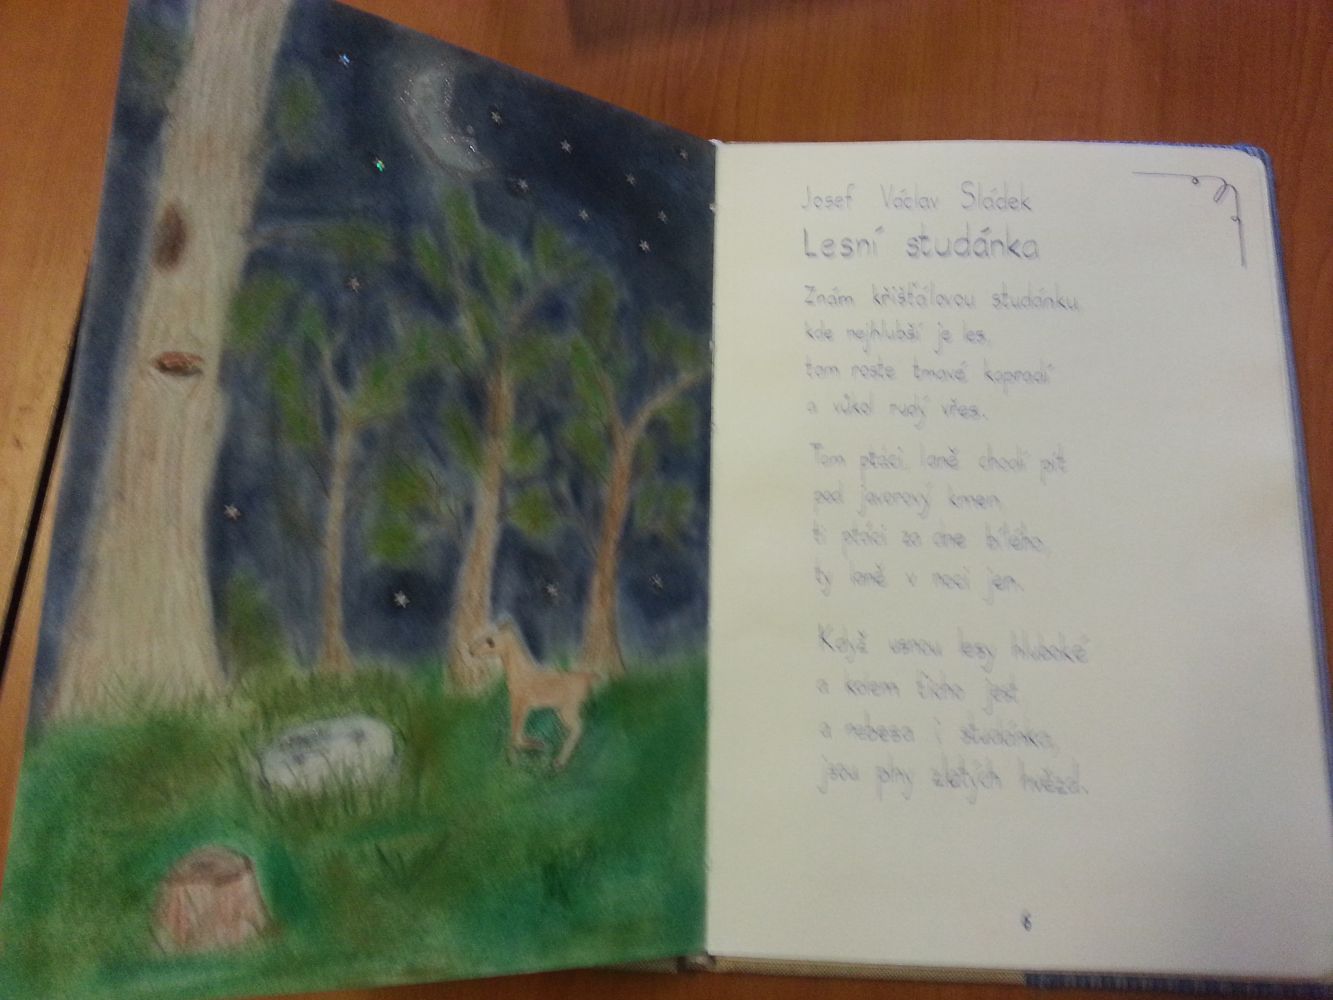 Josef Václav Sládek
Lesní studánka
Znám křišťálovou studánku
kde nejhlubší je les,
tam roste tmavé kapradí
a vůkol rudý vřes.
Tam ptáci, laně chodí pít
pod javorový kmen,
ti ptáci za dne bílého,
ty laně v noci jen.
Když usnou lesy hluboké
a kolem ticho jest
a nebesa i studánka,
jsou plny zlatých hvězd.
6